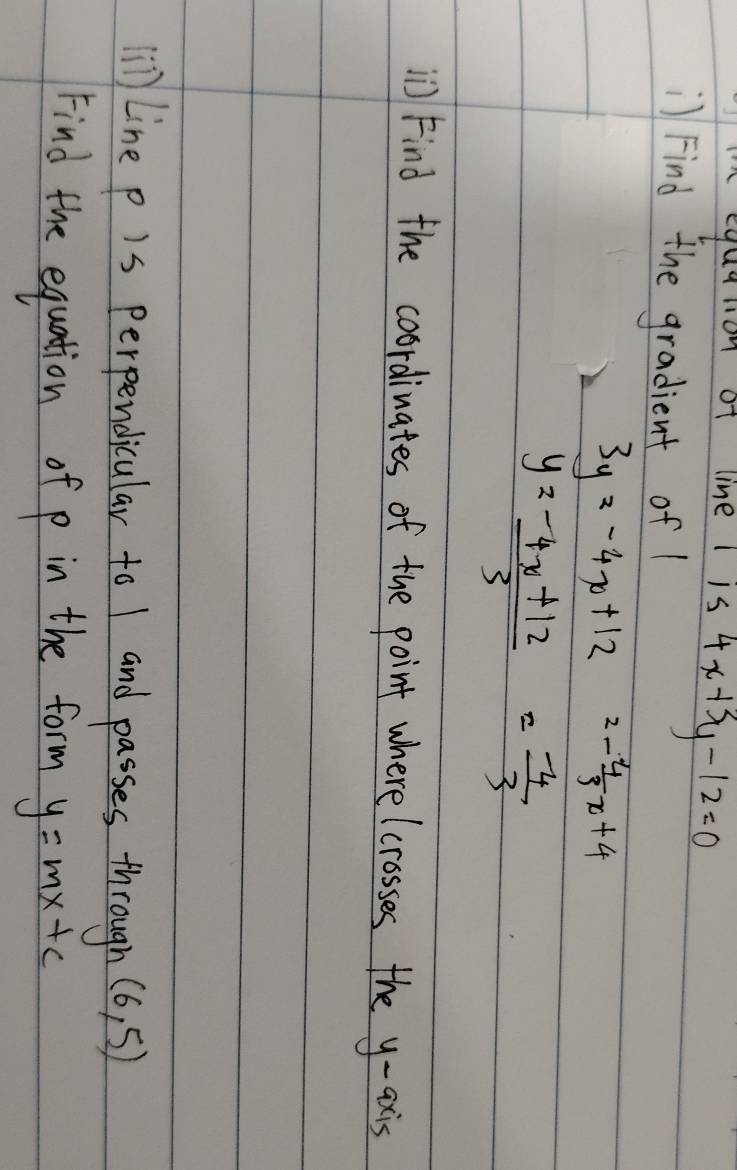 equation of line l is 4x+3y-12=0
i) Find the gradient of l
3y = -4x+12 = -4/3 x+4
y = -4x+12/3 = -4/3
ii) Find the coordinates of the point where l crosses the y-axis
iii) Line p is perpendicular to l and passes through (6,5)
Find the equation of p in the form y=mx+c